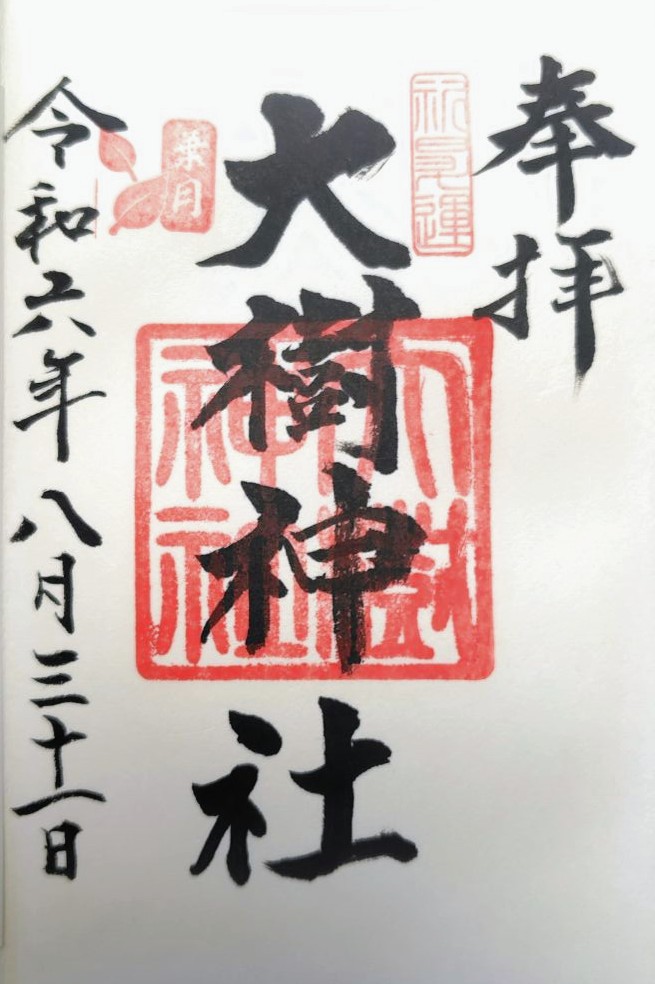 奉拝
大樹神社
大樹神社
葉月
令和六年八月三十一日